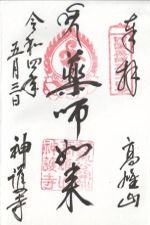 奉拝
高雄山
薬師如来
神護寺
令和四年
五月三日